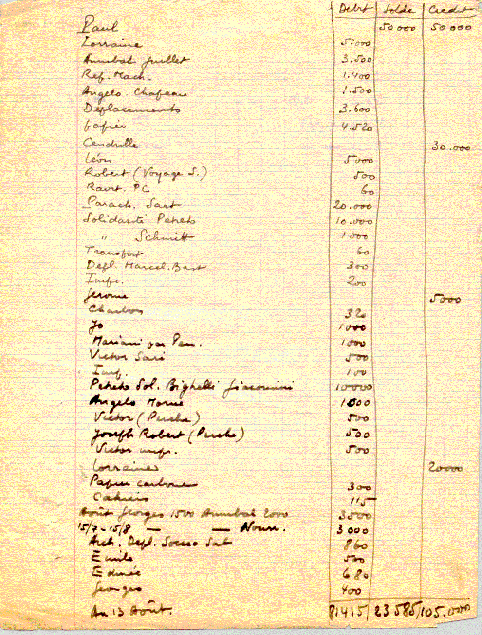 Debit Solde Credit
Paul 50000 50 000
Lorraine 5.000
Annibal Juillet 3.500
Rep. Mach. 1.400
Angelo. Chapeau 1.500
Déplacements 3.600
papier 4.520
Cendrille 30.000
Léon 5000
Robert (Voyage S.) 500
Ravit. PC 60
Parach. Sart 20.000
Solidarité Pereto 10.000
" Schmitt 1000
Transport 60
Depl. Marcel. Bast 300
Impr. 200
Jerome 5000
Charbon 320
Jo 1000
Mariani par Pan. 1000
Victor Sari 500
Imp. 100
Pereto Sol. Bighelli Giacomini 10000
Angelo Morne 1000
Victor (Perche) 500
Joseph Robert (Perche) 500
Victor impr. 500
Lorraine 20000
Papier carbone 300
Cahiers 115
Août Georges 1500 Annibal 2000 3500
15/7 - 15/8 — — Nourr. 3000
Arch. Depl. Socco Sat 860
Emile 500
Edmée 680
Georges 400
Au 13 Août. 81415 23585 105.000